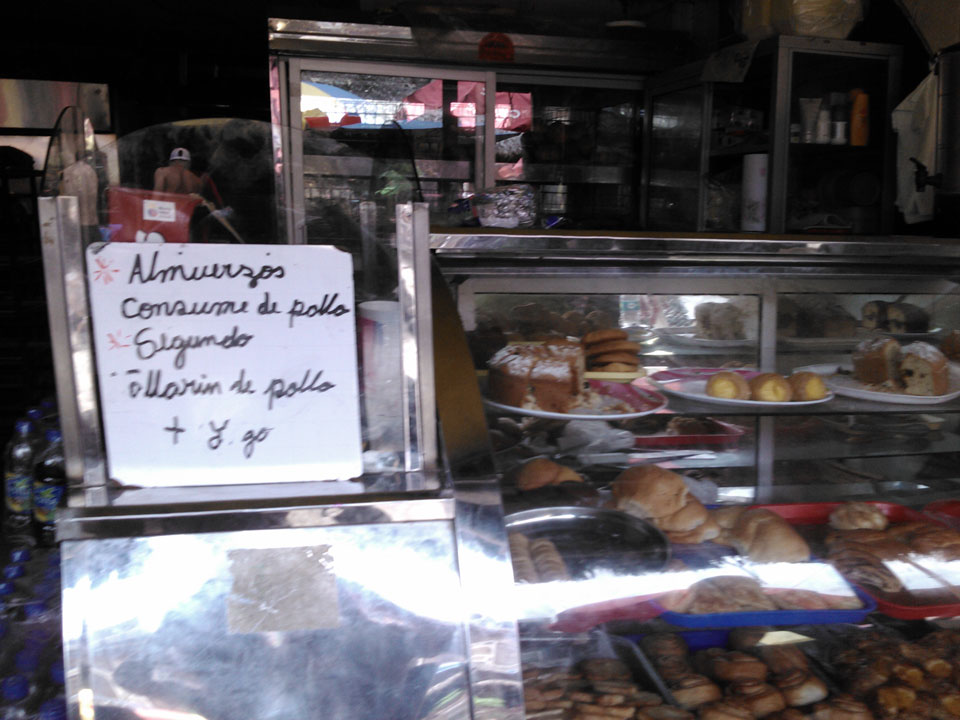 Almuerzos
Consume de pollo
Segundo
de pollo
+ Y. go